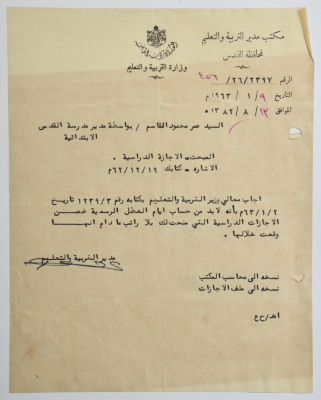 مكتب مدير التربية والتعليم
لمحافظة القدس
وزارة التربية والتعليم
الرقم ٤٥٦/٢٦/٢٣٩٧
التاريخ ٩ / ١ / ١٩٦٣ م
الموافق ١٣ / ٨ / ١٣٨٢ هـ
السيد عمر محمود القاسم / بواسطة مدير مدرسة القدس
الابتدائية
المبحث :- الاجازة الدراسية .
الاشاره :- كتابك ٦٢/١٢/١٩م
اجاب معالي وزير التربية والتعليم بكتابه رقم ١٢٣٩/٣ تاريخ
٦٣/١/٢م بأنه لابد من حساب ايام العطل الرسمية ضمن
الاجازات الدراسية التي منحت لك بلا راتب ما دام انها
وقعت خلالها .
مدير التربية والتعليم
نسخه الى محاسب المكتب
نسخه الى ملف الاجازات
اهـ/ع ع